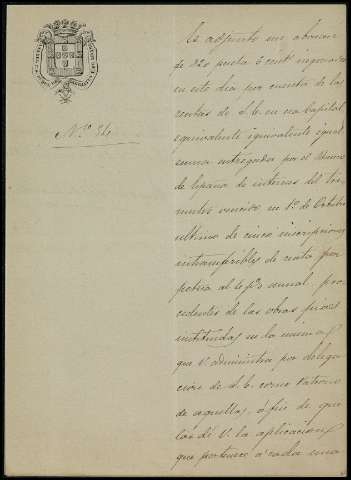 Nº 34
Es adjunto un abonaré
de 820 pesetas 6 cents ingresados
en este dia por cuenta de las
rentas de S.E. en esa Capital
equivalente equivalente igual
suma entregada por el Banco
de España de intereses del tri-
mestre vencido en 1º de Octubre
ultimo de cinco inscripciones
intransferibles de renta per-
petua al 4 p% anual, pro-
cedentes de las obras pias
instituidas en la misma
que V. administra por delega
cion de S.E. como Patrono
de aquellas, á fin de que
las dé V. la aplicacion
que pertenece á cada una